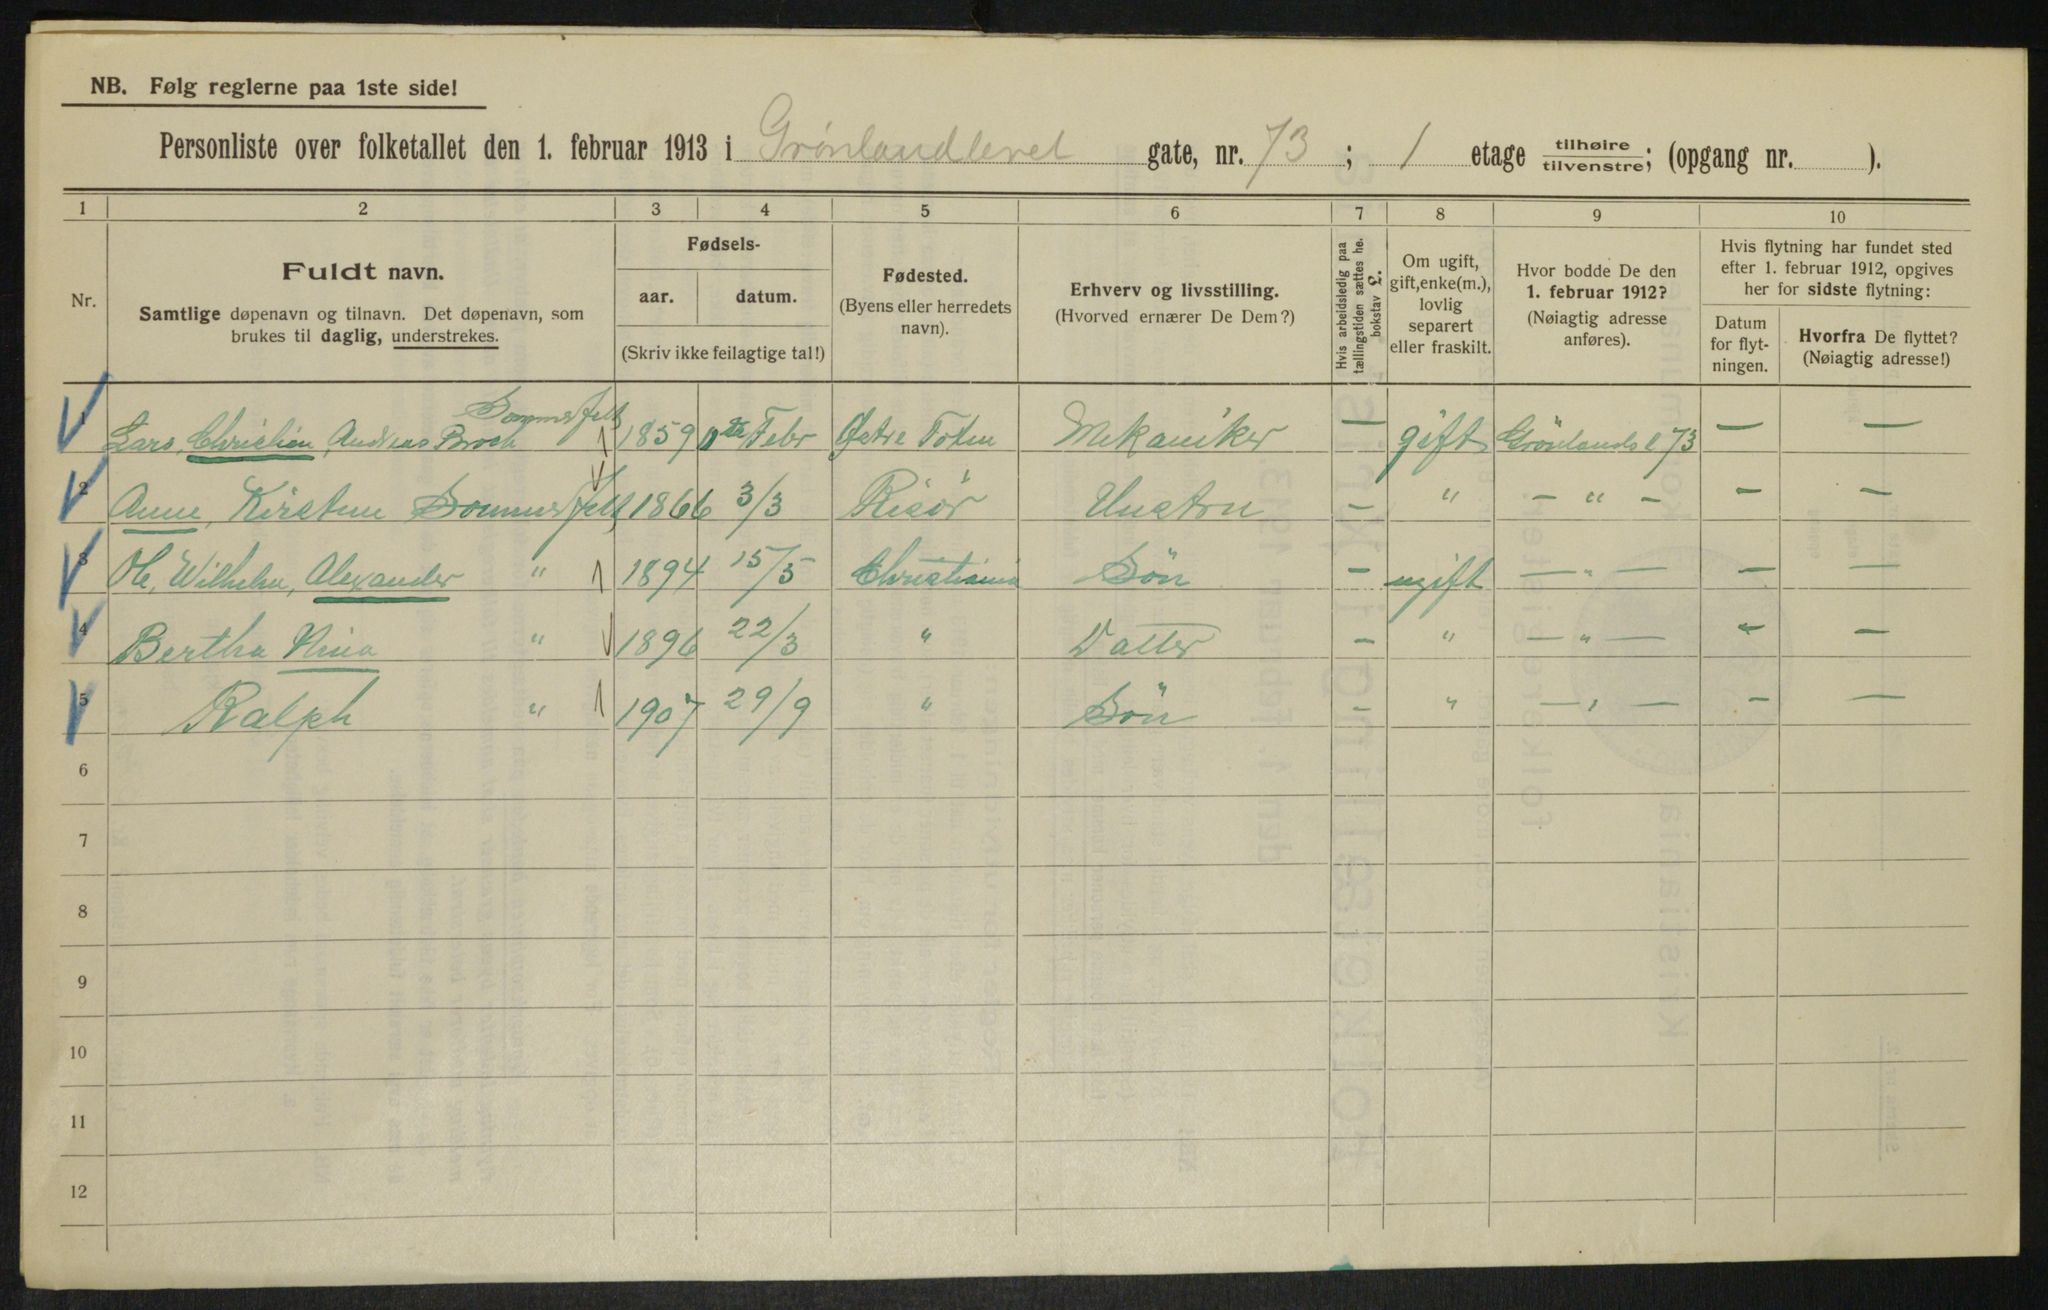 NB. Følg reglerne paa 1ste side!
Personliste over folketallet den 1. februar 1913 i Grönlandleret gate, nr. 73; 1 etage tilhøire/tilvenstre; (opgang nr. ).
1 2 3 4 5 6 7 8 9 10
Nr.
Fuldt navn.
Samtlige døpenavn og tilnavn. Det døpenavn, som
brukes til daglig, understrekes.
Fødsels-
aar. datum.
(Skriv ikke feilagtige tal!)
Fødested.
(Byens eller herredets
navn).
Erhverv og livsstilling.
(Hvorved ernærer De Dem?)
Hvis arbeidsledig paa
tællingstiden sættes he.
bokstav g.
Om ugift,
gift, enke(m.),
lovlig
separert
eller fraskilt.
Hvor bodde De den
1. februar 1912?
(Nøiagtig adresse
anføres).
Hvis flytning har fundet sted
efter 1. februar 1912, opgives
her for sidste flytning:
Datum
for flyt-
ningen.
Hvorfra De flyttet?
(Nøiagtig adresse!)
Sommerfelt
1 Lars, Christian, Andreas Broch 1859 Febr Østre Toten Mekaniker — gift Grönlandsl 73 — —
2 Anne, Kirstine Sommerfelt 1866 3/3 Risör Hustru — " — " — — —
3 Ole, Wilhelm, Alexander " 1894 15/5 Christiania Sön — ugift — " — — —
4 Bertha Nina " 1896 22/3 " Datter — " — " — — —
5 Ralph " 1907 29/9 " Sön — " — " — — —
6
7
8
9
10
11
12